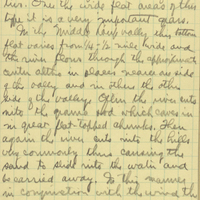 ties. On the wide flat area's of this
type it is a very important grass.
In the Middle Loup valley this bottom
flat varies from 1/4 - 1/2 mile wide and
the river flows through the approximate
center altho in places nearer one side
of the valley and in others the other
side of the valley. Often the river cuts
into the ground sod which caves in
in great flat-topped chunks. Then
again the river cuts into the hills
very commonly thus causing the
sand to slide into the water and
be carried away. In this manner
in conjunction with the wind the